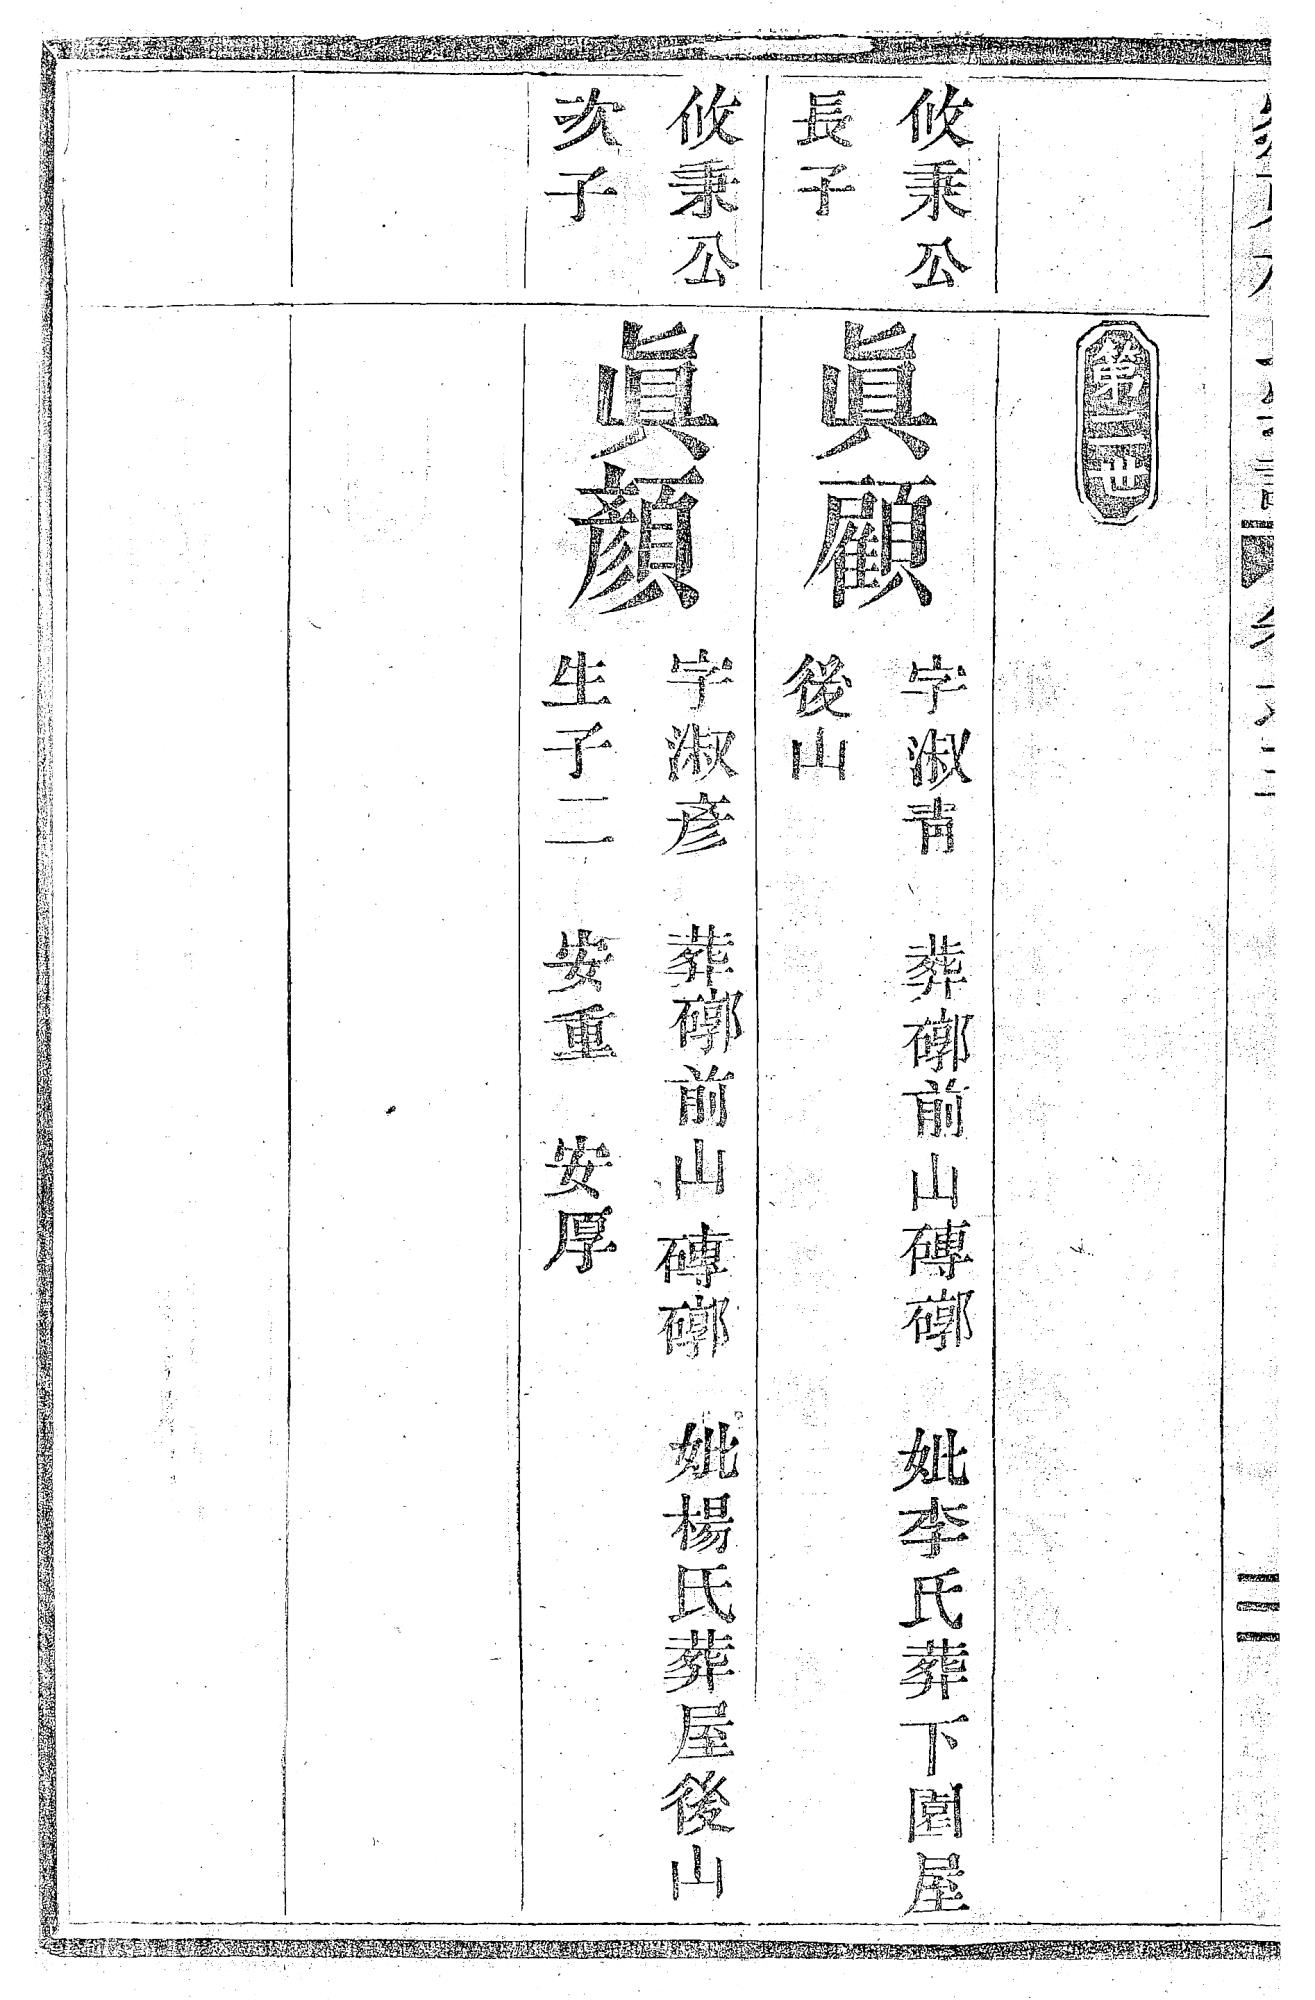 第二世
攸秉公
長子
眞顧
字淑靑 葬前山磚 妣李氏葬下園屋
後山
攸秉公
次子
眞顔
字淑彥 葬前山磚 妣楊氏葬屋後山
生子二 安重 安厚
三